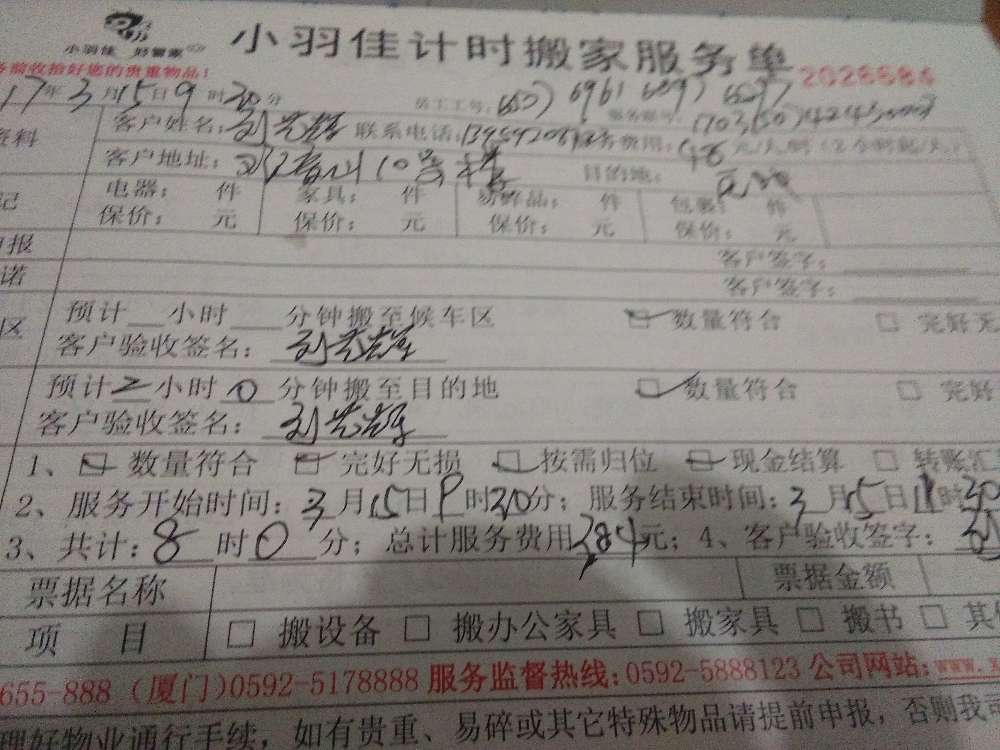 小羽佳 好管家 小羽佳计时搬家服务单
前收拾好您的贵重物品! 2026684
17年3月15日9时30分 员工工号:
资料 客户姓名: 联系电话: 费用:48元/人/时(2小时起/人)
客户地址: 目的地:
记 电器: 件 家具: 件 易碎品: 件 包裹: 件
保价: 元 保价: 元 保价: 元 保价: 元
申报 客户签字:
诺 客户签字:
区 预计 小时 分钟搬至候车区 数量符合 完好无
客户验收签名:
预计二小时0分钟搬至目的地 数量符合 完好
客户验收签名:
1、 数量符合 完好无损 按需归位 现金结算 转账汇
2、服务开始时间:3月15日9时30分;服务结束时间:3月15日11时30
3、共计:8时0分;总计服务费用384元;4、客户验收签字:
票据名称 票据金额
项 目 □ 搬设备 □ 搬办公家具 □ 搬家具 □ 搬书 □ 其
655-888 (厦门)0592-5178888 服务监督热线:0592-5888123 公司网站:www.x
理好物业通行手续,如有贵重、易碎或其它特殊物品请提前申报,否则我司